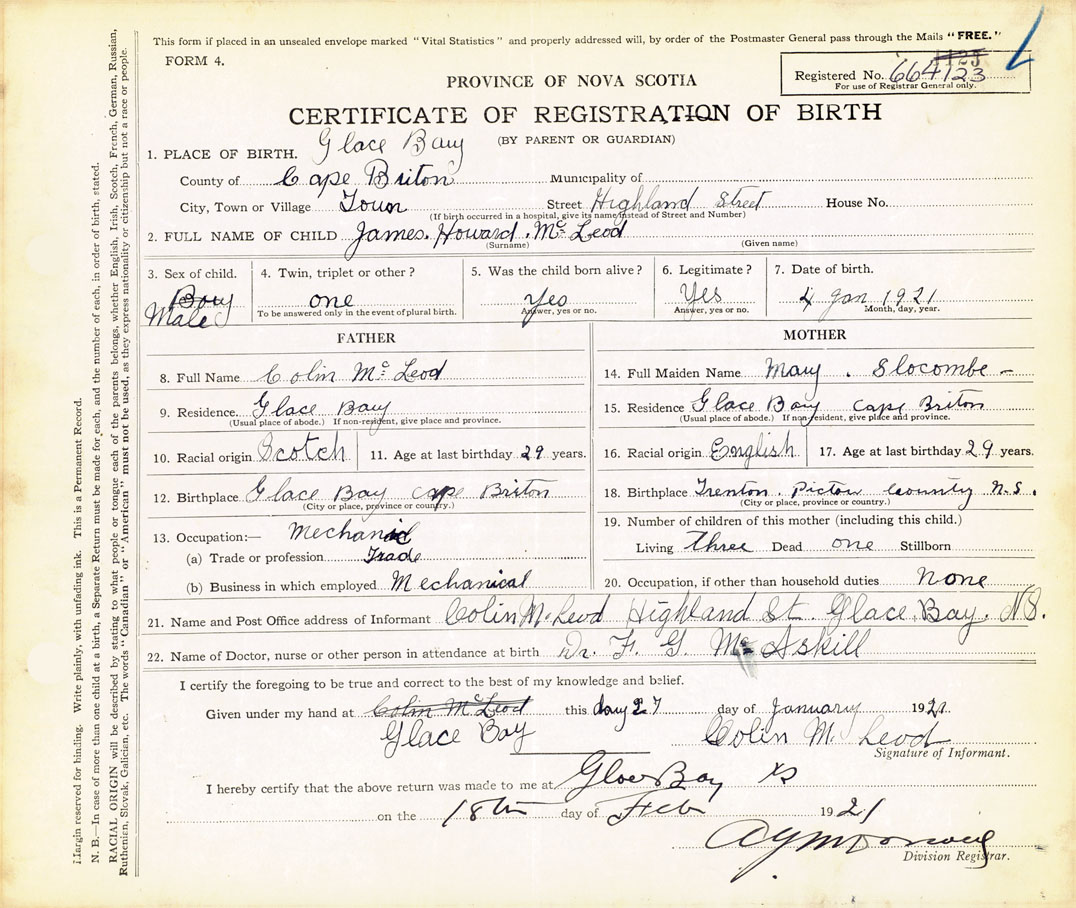 This form if placed in an unsealed envelope marked "Vital Statistics" and properly addressed will, by order of the Postmaster General pass through the Mails "FREE."
FORM 4.
Registered No. 664123
For use of Registrar General only.
PROVINCE OF NOVA SCOTIA
CERTIFICATE OF REGISTRATION OF BIRTH
(BY PARENT OR GUARDIAN)
1. PLACE OF BIRTH. Glace Bay
County of Cape Briton Municipality of
City, Town or Village Town Street Highland Street House No.
(If birth occurred in a hospital, give its name instead of Street and Number)
2. FULL NAME OF CHILD James. Howard. Mc Leod
(Surname) (Given name)
3. Sex of child. Boy Male
4. Twin, triplet or other? one
To be answered only in the event of plural birth.
5. Was the child born alive? Yes
Answer, yes or no.
6. Legitimate? Yes
Answer, yes or no.
7. Date of birth. 4 Jan 1921
Month, day, year.
FATHER
8. Full Name Colin Mc Leod
9. Residence. Glace Bay
(Usual place of abode.) If non-resident, give place and province.
10. Racial origin Scotch 11. Age at last birthday 29 years.
12. Birthplace Glace Bay Cape Briton
(City or place, province or country.)
13. Occupation:— Mechanic
(a) Trade or profession Trade
(b) Business in which employed Mechanical
MOTHER
14. Full Maiden Name Mary . Slocombe -
15. Residence Glace Bay Cape Briton
(Usual place of abode.) If non-resident, give place and province.
16. Racial origin English 17. Age at last birthday 29 years.
18. Birthplace Trenton. Pictou County N.S.
(City or place, province or country.)
19. Number of children of this mother (including this child.)
Living three Dead one Stillborn
20. Occupation, if other than household duties None
21. Name and Post Office address of Informant Colin McLeod Highland St Glace Bay. N.S.
22. Name of Doctor, nurse or other person in attendance at birth Dr. F. G. Mc Askill
I certify the foregoing to be true and correct to the best of my knowledge and belief.
Given under my hand at Colin McLeod this day 27 day of January 1921
Glace Bay Colin Mc Leod
Signature of Informant.
I hereby certify that the above return was made to me at Glace Bay NS
on the 18th day of Feb 1921
Division Registrar.
Margin reserved for binding. Write plainly, with unfading ink. This is a Permanent Record.
N. B.—In case of more than one child at a birth, a Separate Return must be made for each, and the number of each, in order of birth, stated.
RACIAL ORIGIN will be described by stating to what people or tongue each of the parents belongs, whether English, Irish, Scotch, French, German, Russian,
Ruthenian, Slovak, Galician, etc. The words "Canadian" or "American" must not be used, as they express nationality or citizenship but not a race or people.